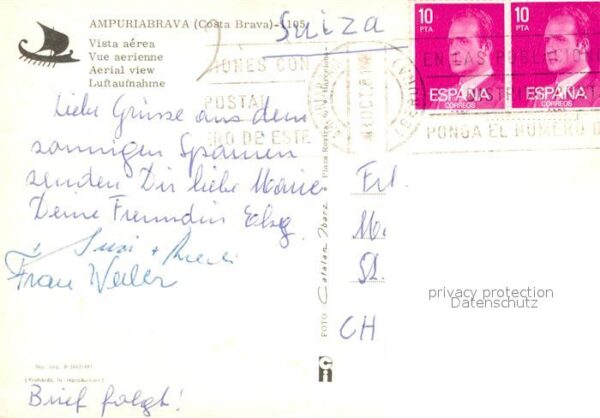 AMPURIABRAVA (Costa Brava)-1105
Vista aérea
Vue aerienne
Aerial view
Luftaufnahme
Suiza
10
PTA
ESPAÑA
CORREOS
10
PTA
ESPAÑA
CORREOS
IONES CON
POSTAL
RO DE ESTE
EN LAS POBLACION
PONGA EL NUMERO D
Liebe Grüsse aus dem
sonnigen Spanien
senden Dir liebe Marie
Deine Freundin
+ Susi +
Frau Weiler
Frl.
M.
St.
CH
FOTO Catalan Ibarz Plaza Rovira, Barcelona
privacy protection
Datenschutz
Brief folgt!